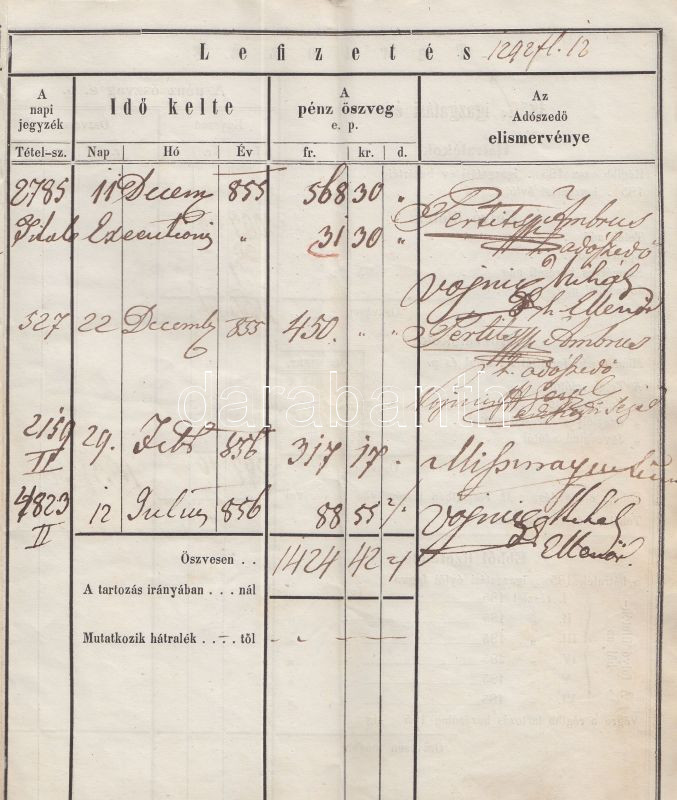 Lefizetés 1292 fl. 12
A napi jegyzék Idő kelte A pénz öszveg e. p. Az Adószedő elismervénye
Tétel-sz. Nap Hó Év fr. kr. d.
2785 11 Decem 855 568 30 „ Pertits Ambrus
Executionis „ 31 30 „ adószedő
Vojnics Mihály
Ellenőr
527 22 Decemb 855 450 „ „ Pertits Ambrus
adószedő
darabanth
2159 II 29. Feb 856 317 17 „
4823 II 12 Julius 856 88 55 2/. Vojnics Mihály
Ellenőr
Öszvesen . . 1424 42 2/
A tartozás irányában . . . nál
Mutatkozik hátralék . . . . től